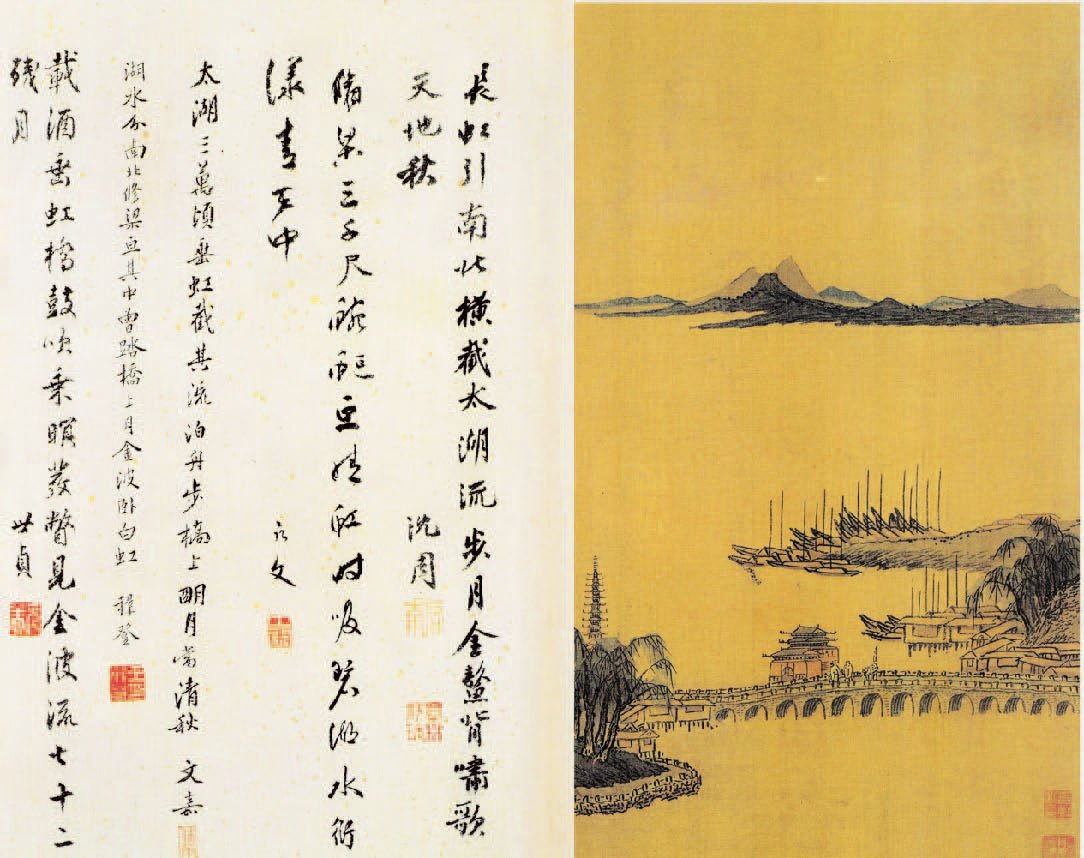 長虹引南北橫截太湖流步月金鰲背嘯歌
天地秋 沈周
脩梁三千尺蜿蜒亘晴虹时吸碧湖水衍
漾青天中
太湖三萬頃垂虹截其流泊舟步橋上明月當清秋 文嘉
湖水分南北修梁亘其中曾踏橋上月金波卧白虹
載酒垂虹橋鼓吹乘暝發瞥見金波流七十二
殘月 世貞